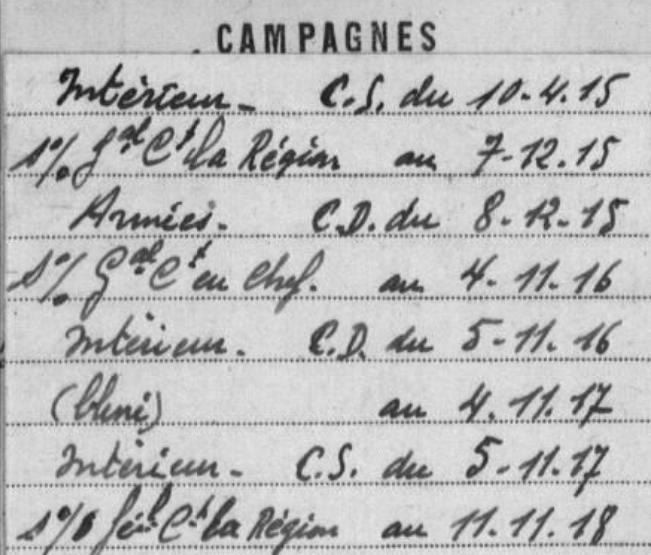 CAMPAGNES
Intérieur - C.S. du 10.4.15
s/o Gal Ct la Région au 7-12.15
Armées. C.D. du 8-12-15
s/o Gal Ct en Chef. au 4.11.16
Intérieur. C.D. du 5-11.16
(blessé) au 4.11.17
Intérieur - C.S. du 5-11.17
s/o Gén. Ct la Région au 11.11.18